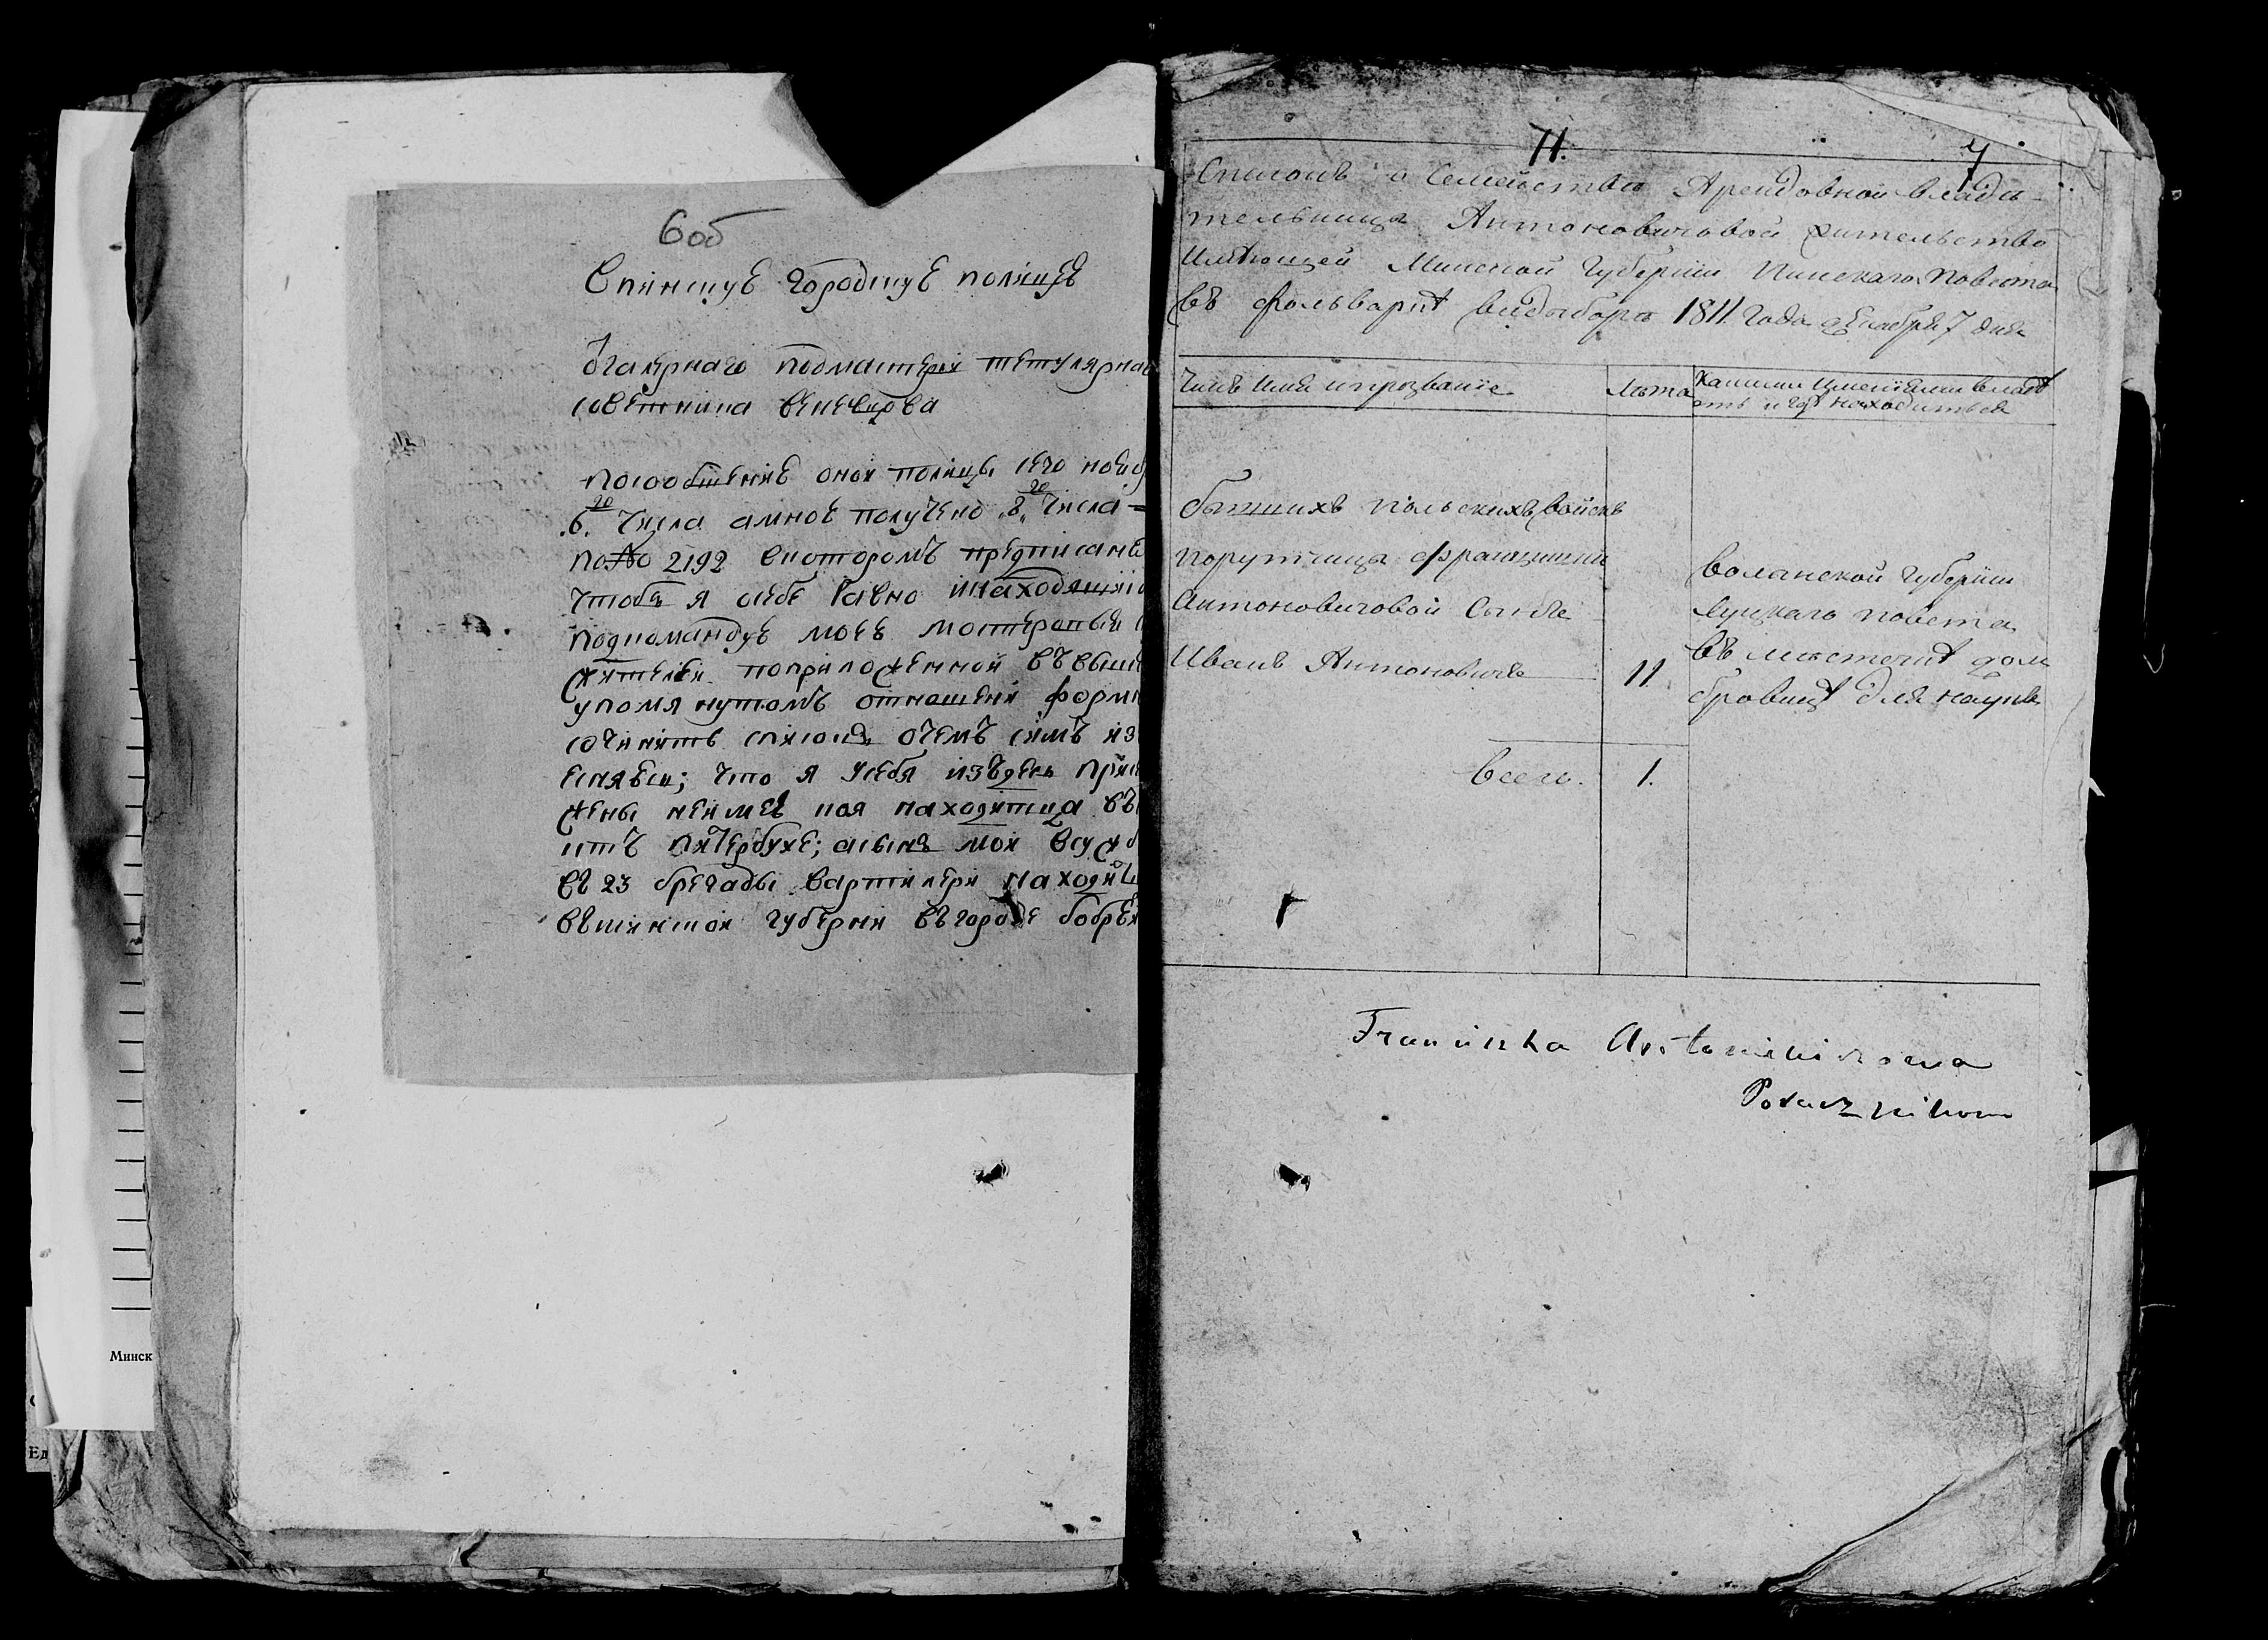 6 об
Спинскуе городскуе полицые
подмастерья титулярнаг
советника
посообшение оной полицы сего нояб
6го числа амною получено 8го числа
по № 2192 вкоторомъ предписани
чтобы я осебе равно инаходящии
подкомандуе моее мостеровые
жителей поприложенной въ выше
упомянутомъ отношени форме
сочинить списокъ очемъ симъ из
что я усебя изъдень при
жены неимев коя находитца въ
питербухе; асынъ мои
въ 23 брегады вартилери находи
вминской губерни въ городе бобре
11.
7
Списокъ о Семействѣ Арендовной владѣ-
тельницы Антоновичовой жительство
Имѣющей Минской Губернiи Пинскаго Повета
въ фольваркѣ 1811. Года декабря 7 дня
Чинъ Имя и прозванiе
Лѣта
Какими Именiями владѣ
етъ и гдѣ находиться
бывшихъ польскихъ войскъ
порутчица Францишки
Антоновичовой Сынъ
Иванъ Антоновичъ
11
Воланской Губернiи
Луцкаго повета
въ местечкѣ дом
бровицѣ для наукъ
Всего.
1.
Franciszka Antonowiczowa
Porucznikowa
Минск
Ед